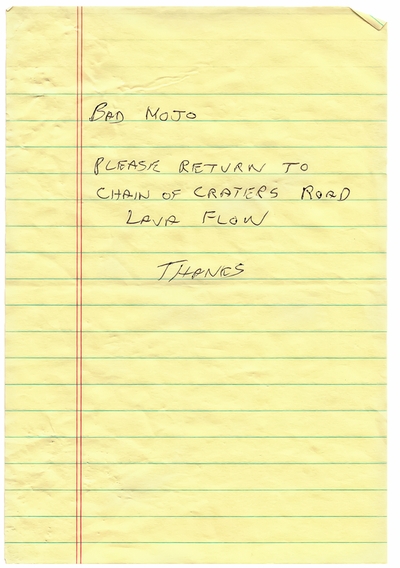 BAD MOJO
PLEASE RETURN TO
CHAIN OF CRATERS ROAD
LAVA FLOW
THANKS